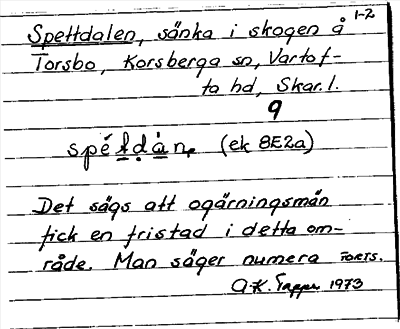 1-2
Spettdalen, sänka i skogen å
Torsbo, Korsberga sn, Vartof-
ta hd, Skar.l.
9
(ek 8E2a)
Det sägs att ogärningsmän
fick en fristad i detta om-
råde. Man säger numera FORTS.
A-K. 1973